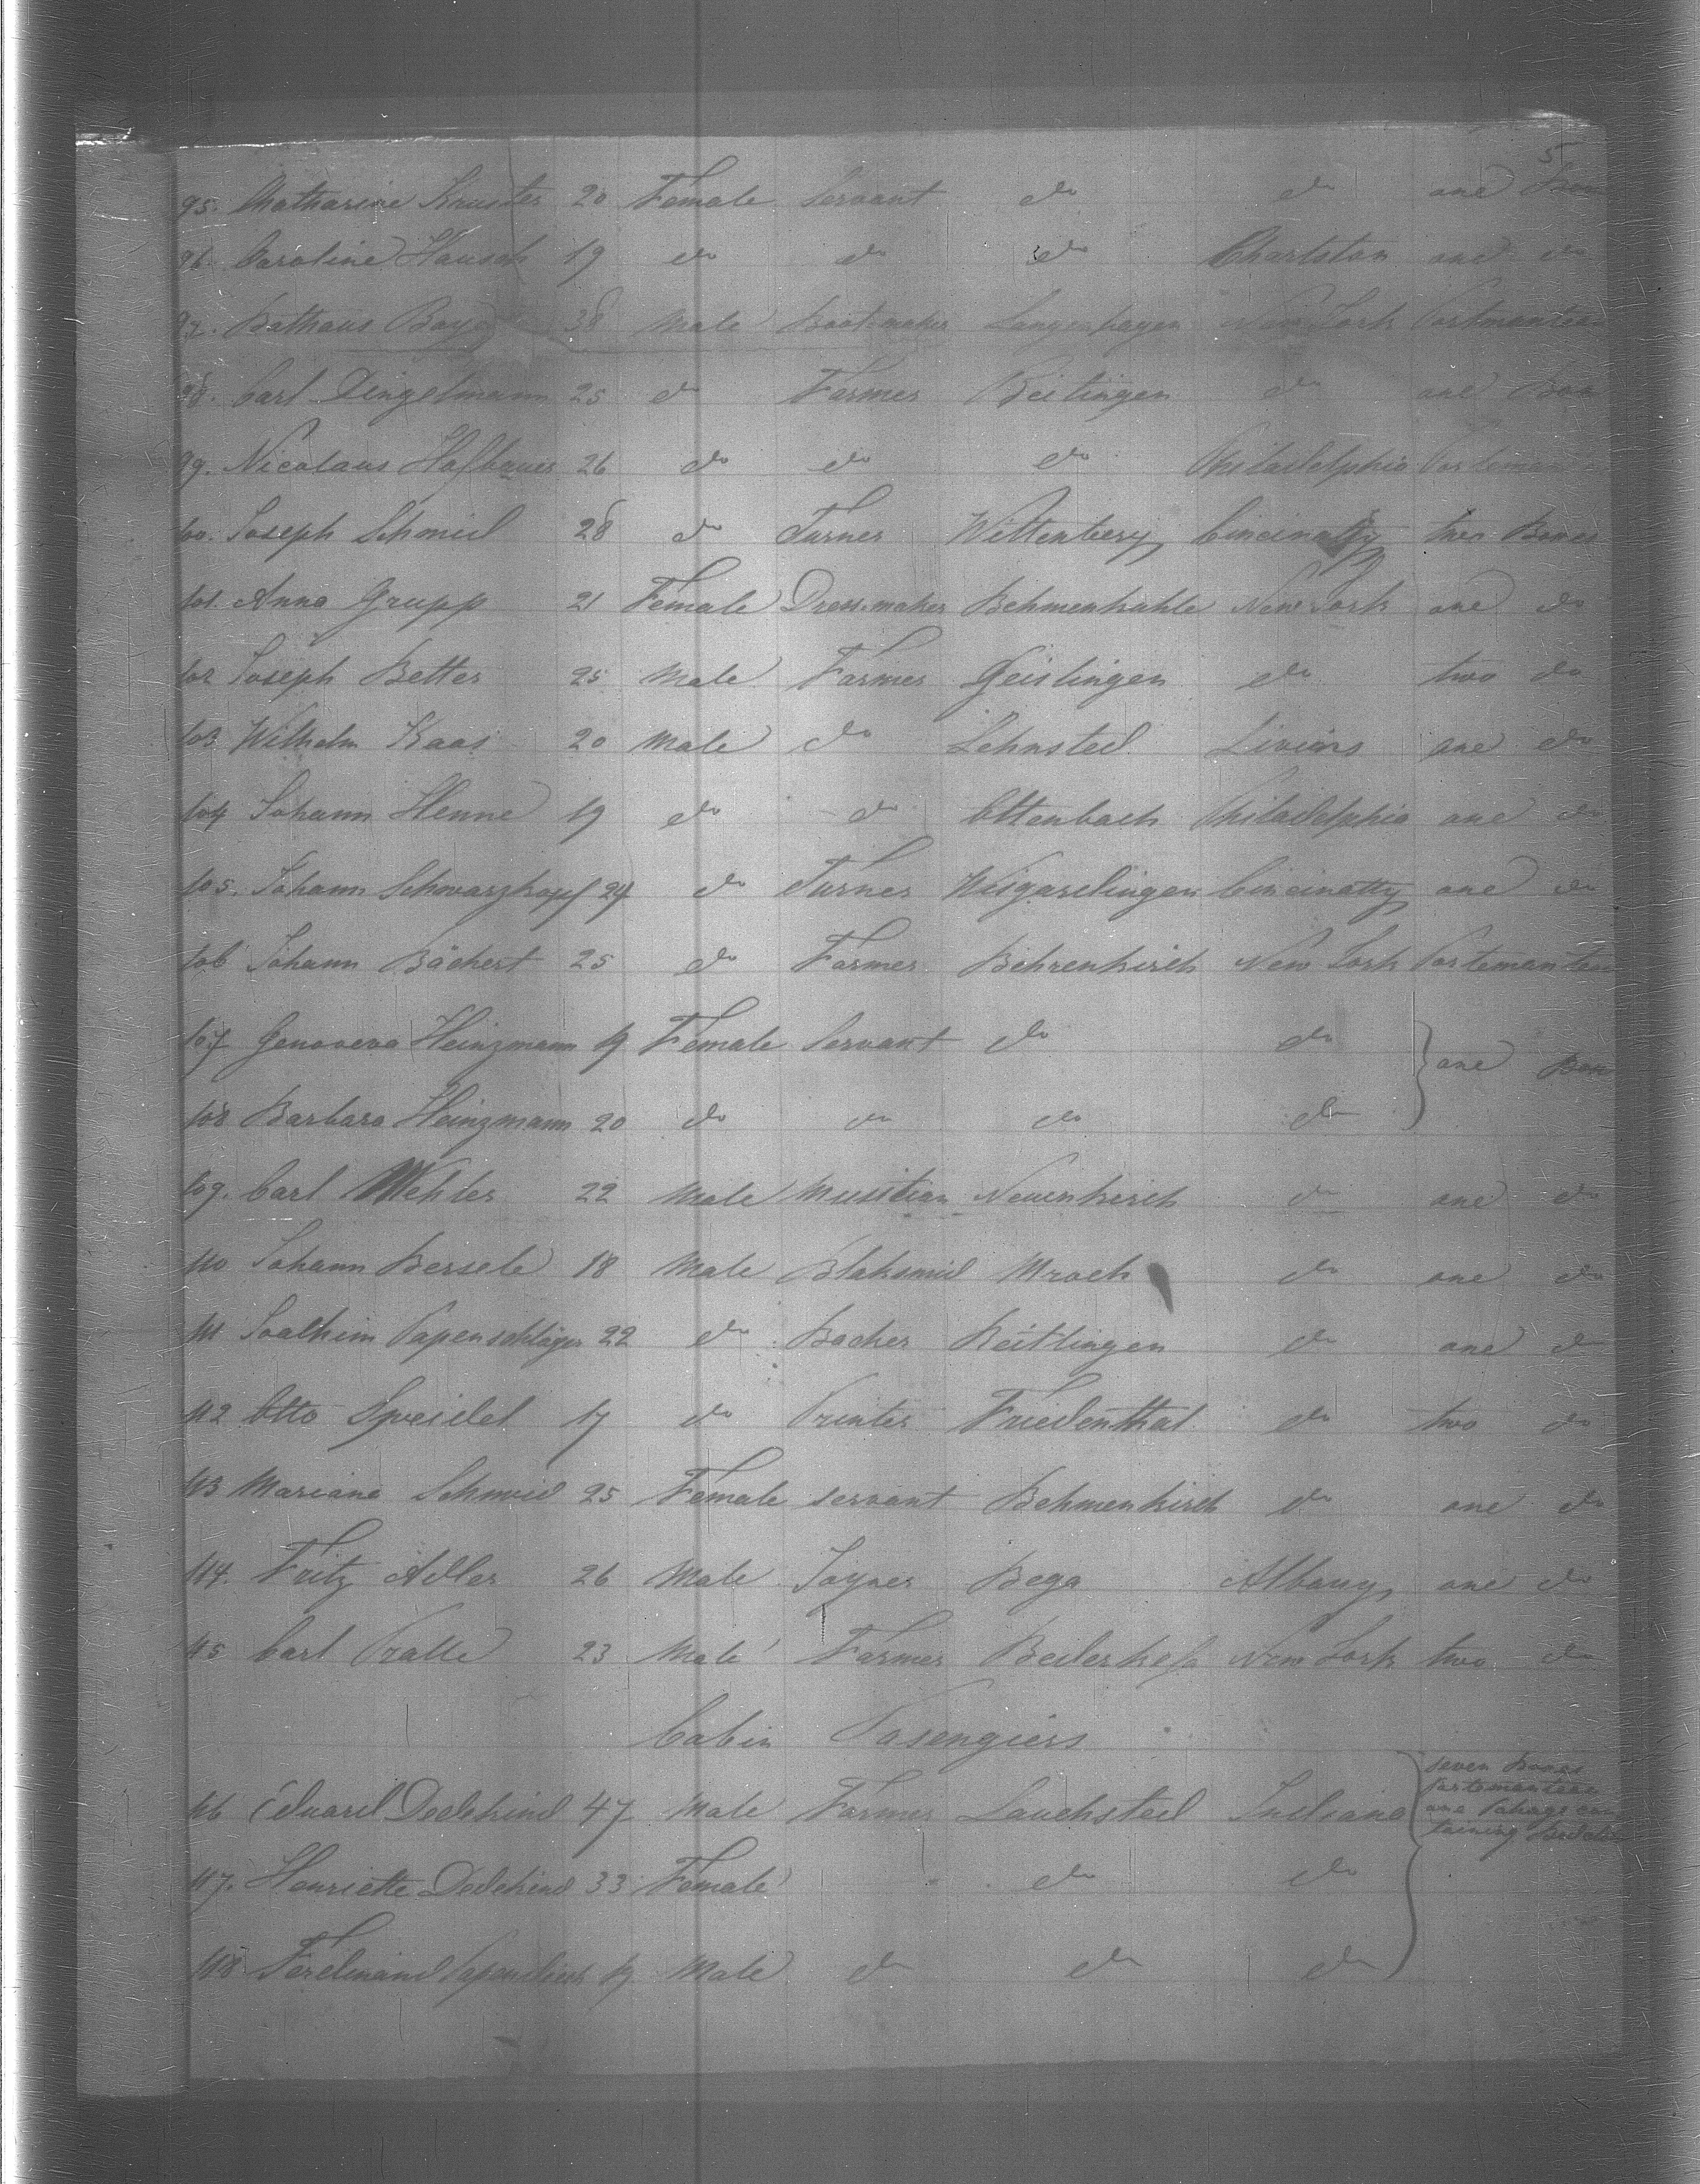 5
95. Catharine Kruster 20 Female Servant do do one Box
96 Caroline Hausch 19 do do do Charlston one do
97. Bathaus Baye 38 Male Bootmaker Langenhagen New York Portmanteau
98. Carl Dingelmann 25 do Farmer Beitingen do one Box
99. Nicolaus Hofbauer 26 do do do Philadelphia Portemanteau
100. Joseph Schmid 28 do Turner Wittenberg Cincinatty two Boxes
101. Anna Grupp 21 Female Dressmaker Behmenkuhle New York one do
102 Joseph Better 25 Male Farmer Geislingen do two do
103 Wilhelm Kaas 20 Male do Lehnsted Livions one do
104 Johann Henne 19 do do Ottenbach Philadelphia one do
105. Johann Schwarzkopf 24 do Turner Wisgardingen Cincinatty one do
106 Johann Bächert 25 do Farmer Behrenkirch New York Portemanteau
107 Genoveva Heinzmann 19 Female Servant do do one Box
108 Barbara Heinzmann 20 do do do do
109. Carl Wehler 22 Male Musitian Neuenkirch do one do
110 Johann Bersele 18 Male Blaksmid Mroch do one do
111 Joachim Papenschläger 22 do Bacher Reitlingen do one do
112 Otto Speidel 17 do Printer Friedenthal do two do
113 Mariana Schmid 25 Female servant Behmenkirch do one do
114. Fritz Adler 26 Male Joyner Bega Albany one do
115 Carl Pralle 23 Male Farmer Beilerhofs New York two do
Cabin Pasengiers
116 Eduard Dedekind 47 Male Farmer Lauchsted Indiana seven Boxes
Portemanteau
one Pakage con
taining
117. Henriette Dedekind 33 Female do do
118 Ferdinand 19 Male do do do